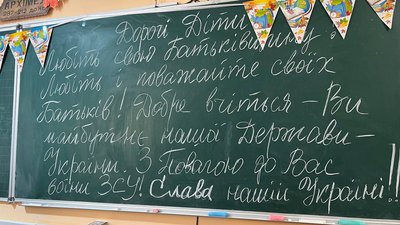 АРХІМЕ
Дорогі Діти
Любіть свою Батьківщину!
Любіть і поважайте своїх
Батьків! Добре вчіться – Ви
майбутнє нашої Держави –
України. З Повагою до Вас
воїни ЗСУ! Слава нашій Україні!!